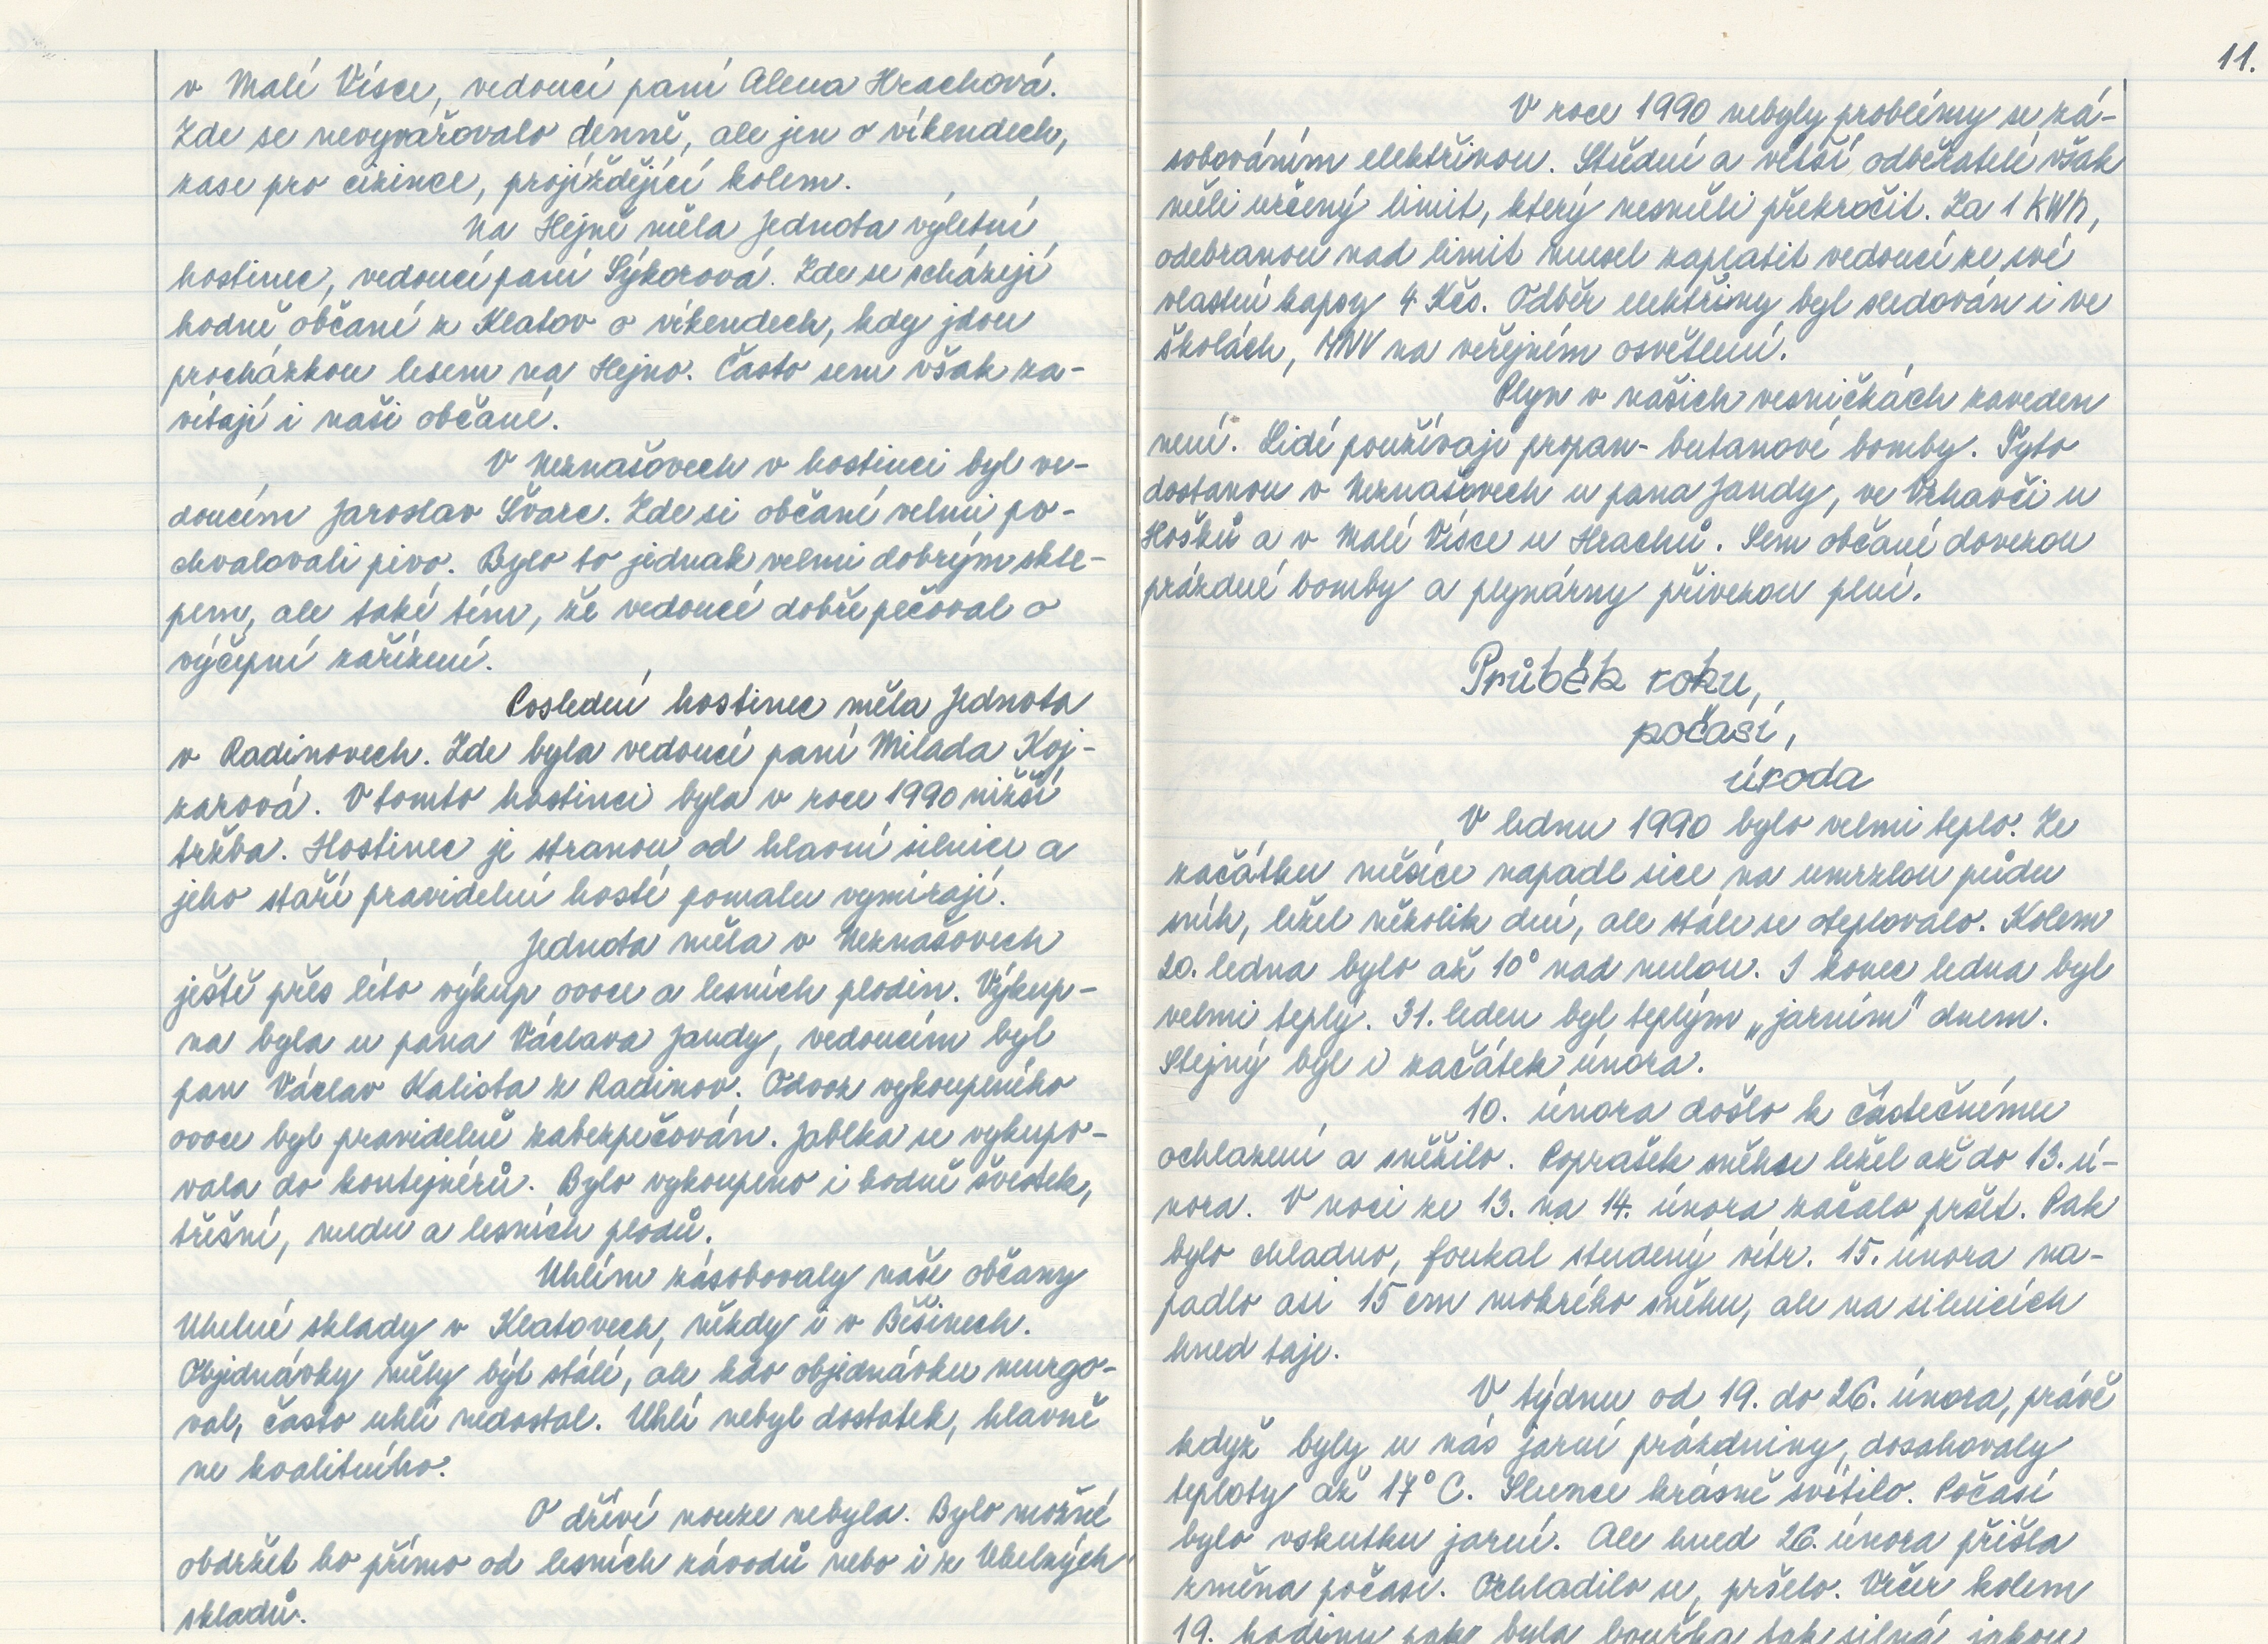 v Malé Vísce, vedoucí paní Alena Hrachová.
Zde se nevyvařovalo denně, ale jen o víkendech,
zase pro cizince, projíždějící kolem.
Na Hejně měla Jednota výletní
hostinec, vedoucí paní Sýkorová. Zde se scházejí
hodně občané z Klatov o víkendech, kdy jdou
procházkou lesem na Hejno. Často sem však za-
vítají i naši občané.
V Neznašovech v hostinci byl ve-
doucím Jaroslav Švarc. Zde si občané velmi po-
chvalovali pivo. Bylo to jednak velmi dobrým skle-
pem, ale také tím, že vedoucí dobře pečoval o
výčepní zařízení.
Poslední hostinec měla Jednota
v Radinovech. Zde byla vedoucí paní Milada Koj-
zarová. V tomto hostinci byla v roce 1990 nižší
tržba. Hostinec je stranou od hlavní silnice a
jeho staří pravidelní hosté pomalu vymírají.
Jednota měla v Neznašovech
ještě přes léto výkup ovoce a lesních plodin. Výkup-
na byla u pana Václava Jandy, vedoucím byl
pan Václav Kalista z Radinov. Odvoz vykoupeného
ovoce byl pravidelně zabezpečován. Jablka se vykupo-
vala do kontejnérů. Bylo vykoupeno i hodně švestek,
třešní, medu a lesních plodů.
Uhlím zásobovaly naše občany
Uhelné sklady v Klatovech, někdy i v Běšinech.
Objednávky měly být stálé, ale kdo objednávku neurgo-
val, často uhlí nedostal. Uhlí nebyl dostatek, hlavně
ne kvalitního.
O dříví nouze nebyla. Bylo možné
obdržet ho přímo od lesních závodů nebo i z Uhelných
skladů.
11.
V roce 1990 nebyly problémy se zá-
sobováním elektřinou. Střední a větší odběratelé však
měli určený limit, který nesměli překročit. Za 1 kWh,
odebranou nad limit musel zaplatit vedoucí ze své
vlastní kapsy 4 Kčs. Odběr elektřiny byl sledován i ve
školách, MNV na veřejném osvětlení.
Plyn v našich vesničkách zaveden
není. Lidé používají propan-butanové bomby. Tyto
dostanou v Neznašovech u pana Jandy, ve Vrhavči u
Hošků a v Malé Vísce u Hrachů. Sem občané dovezou
prázdné bomby a plynárny přivezou plné.
Průběh roku,
počasí,
úroda
V lednu 1990 bylo velmi teplo. Ze
začátku měsíce napadl sice na umrzlou půdu
sníh, ležel několik dní, ale stále se oteplovalo. Kolem
20. ledna bylo až 10° nad nulou. I konec ledna byl
velmi teplý. 31. leden byl teplým „jarním" dnem.
Stejný byl i začátek února.
10. února došlo k částečnému
ochlazení a sněžilo. Poprašek sněhu ležel až do 13. ú-
nora. V noci ze 13. na 14. února začalo pršet. Pak
bylo chladno, foukal studený vítr. 15. února na-
padlo asi 15 cm mokrého sněhu, ale na silnicích
hned taje.
V týdnu od 19. do 26. února, právě
když byly u nás jarní prázdniny, dosahovaly
teploty až 17° C. Slunce krásně svítilo. Počasí
bylo vskutku jarní. Ale hned 26. února přišla
změna počasí. Ochladilo se, pršelo. Večer kolem
19. hodiny pak byla bouřka tak silná jakou